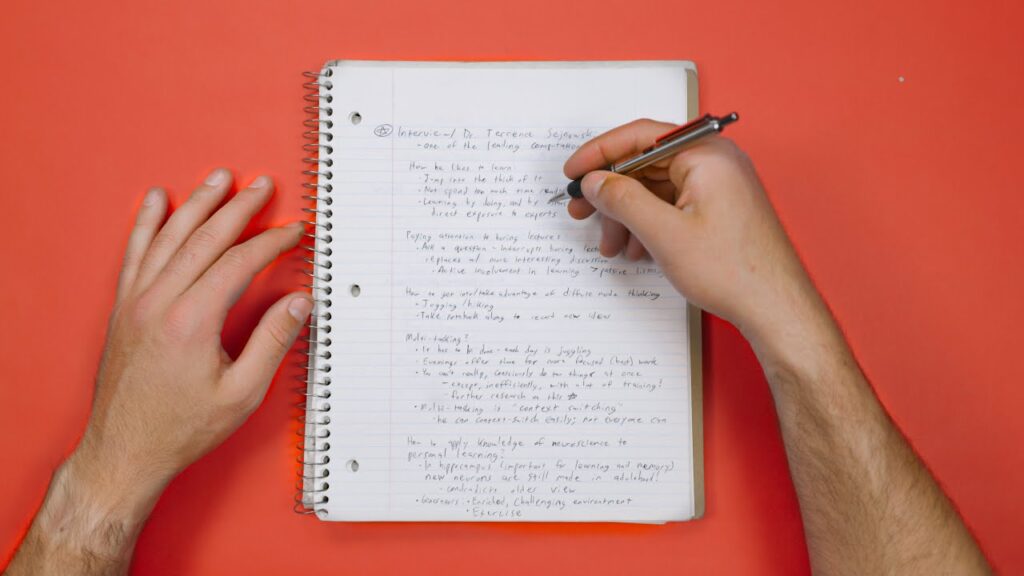 Interview w/ Dr. Terrence Sejnowski
- one of the leading computation
How he likes to learn:
- Jump into the thick of it
- Not spend too much time
- Learning by doing, and by
direct exposure to experts
Paying attention to boring lectures:
• Ask a question - interrupts boring lecture
replaces w/ more interesting discussion
• Active involvement in learning > passive
How to get into/take advantage of diffuse mode thinking
• Jogging/hiking
• Take notebook along to record new ideas
Multi-tasking?
• It has to be done - each day is juggling
• Evenings offer time for more focused (best) work
• You can't really, consciously do two things at once
- except, inefficiently, with a lot of training?
- further research on this
• Multi-tasking is "context switching"
- he can context-switch easily; not everyone can
How to apply knowledge of neuroscience to
personal learning?
- In hippocampus (important for learning and memory)
new neurons are still made in adulthood!
- contradicts older view
• Enriched, challenging environment
• Exercise